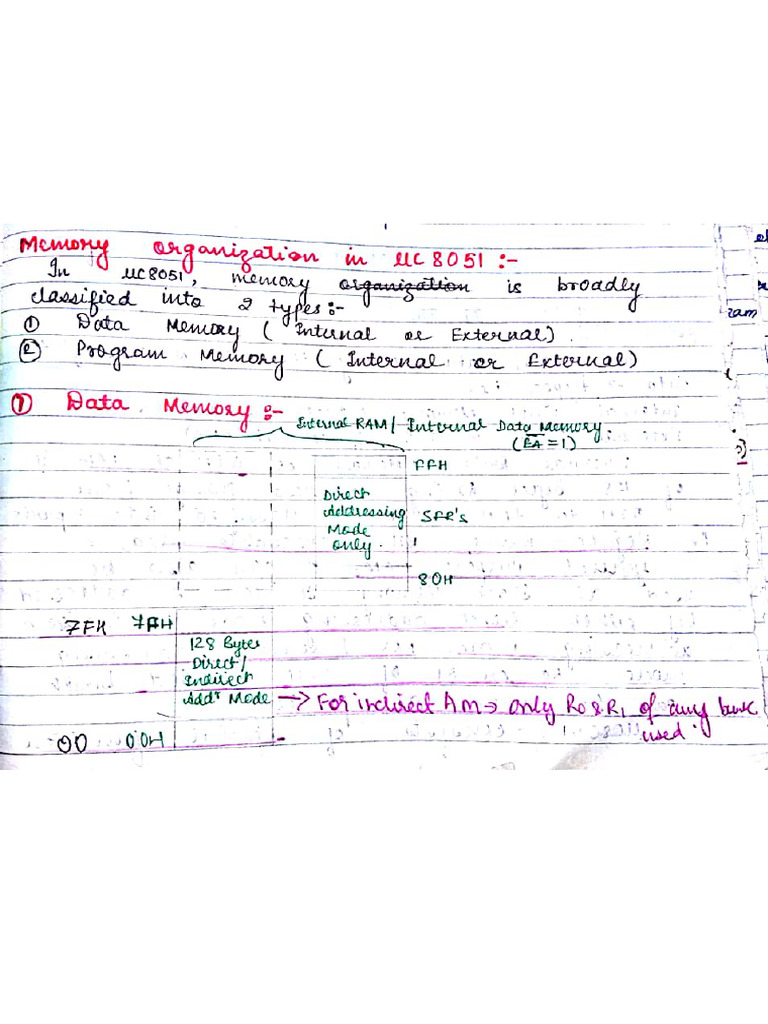 Memory organization in UC 8051 :-
In UC8051, memory organization is broadly
classified into 2 types:-
① Data Memory ( Internal or External)
② Program Memory ( Internal or External)
① Data Memory :-
Internal RAM / Internal Data Memory.
(EA = 1)
FFH
Direct
Addressing
Mode
only.
SFR's
80H
7FH 7FH
128 Bytes
Direct /
Indirect
Addr Mode → For indirect AM → only R0 & R1 of any bank
used.
00 00H
ram